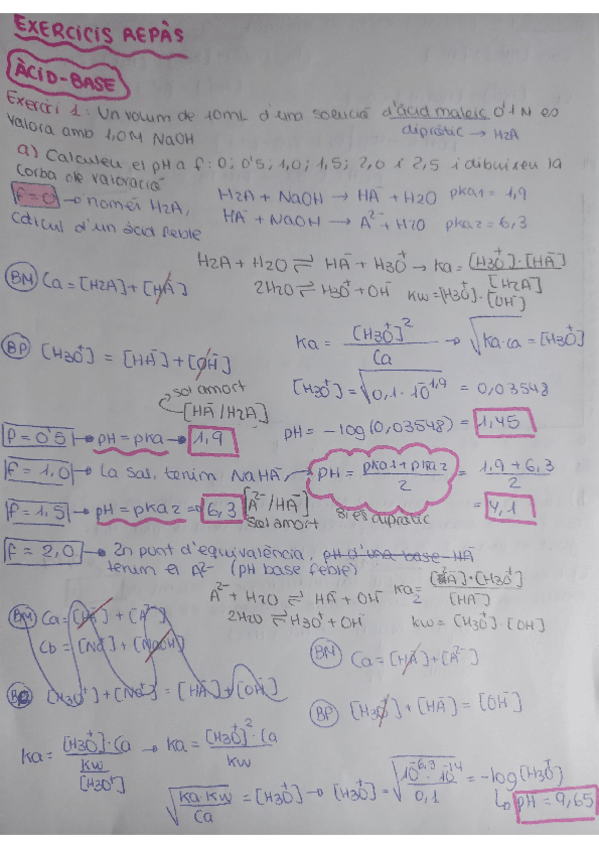 EXERCICIS REPÀS
ÀCID-BASE
Exercici 1: Un volum de 10mL d'una solució d'àcid maleic 0'1 N es
valora amb 1,0M NaOH
dipròtic → H2A
a) Calculeu el pH a f: 0; 0'5; 1,0; 1,5; 2,0 i 2,5 i dibuixeu la
corba de valoració
f=0 → només H2A,
càlcul d'un àcid feble
H2A + NaOH → HA⁻ + H2O pka1 = 1,9
HA⁻ + NaOH → A²⁻ + H2O pka2 = 6,3
H2A + H2O ⇌ HA⁻ + H3O⁺ → Ka = [H3O⁺]·[HA⁻] / [H2A]
2H2O ⇌ H3O⁺ + OH⁻ Kw = [H3O⁺]·[OH⁻]
BM Ca = [H2A] + [HA⁻]
BP [H3O⁺] = [HA⁻] + [OH⁻]
Ka = [H3O⁺]² / Ca → √Ka·Ca = [H3O⁺]
[H3O⁺] = √0,1·10⁻¹'⁹ = 0,03548
pH = -log(0,03548) = 1,45
sol amort
[HA⁻/H2A]
f=0'5 → pH = pka → 1,9
f=1,0 → La sal, tenim NaHA, → pH = pka1+pka2 / 2 = 1,9+6,3 / 2
= 4,1
f=1,5 → pH = pka2 = 6,3 [A²⁻/HA⁻]
sol amort
si és dipròtic
f=2,0 → 2n punt d'equivalència, pH d'una base HA⁻
tenim el A²⁻ (pH base feble)
A²⁻ + H2O ⇌ HA⁻ + OH⁻ Ka2 = [A²⁻]·[H3O⁺] / [HA⁻]
2H2O ⇌ H3O⁺ + OH⁻ Kw = [H3O⁺]·[OH⁻]
BM Ca = [HA⁻] + [A²⁻]
Cb = [Na⁺] + [NaOH]
BM Ca = [HA⁻] + [A²⁻]
[H3O⁺] + [Na⁺] = [HA⁻] + [OH⁻]
BP [H3O⁺] + [HA⁻] = [OH⁻]
Ka = [H3O⁺]·Ca / Kw / [H3O⁺] → Ka = [H3O⁺]²·Ca / Kw
√Ka·Kw / Ca = [H3O⁺] → [H3O⁺] = √10⁻⁶'³·10⁻¹⁴ / 0,1 = -log[H3O⁺]
↳ pH = 9,65